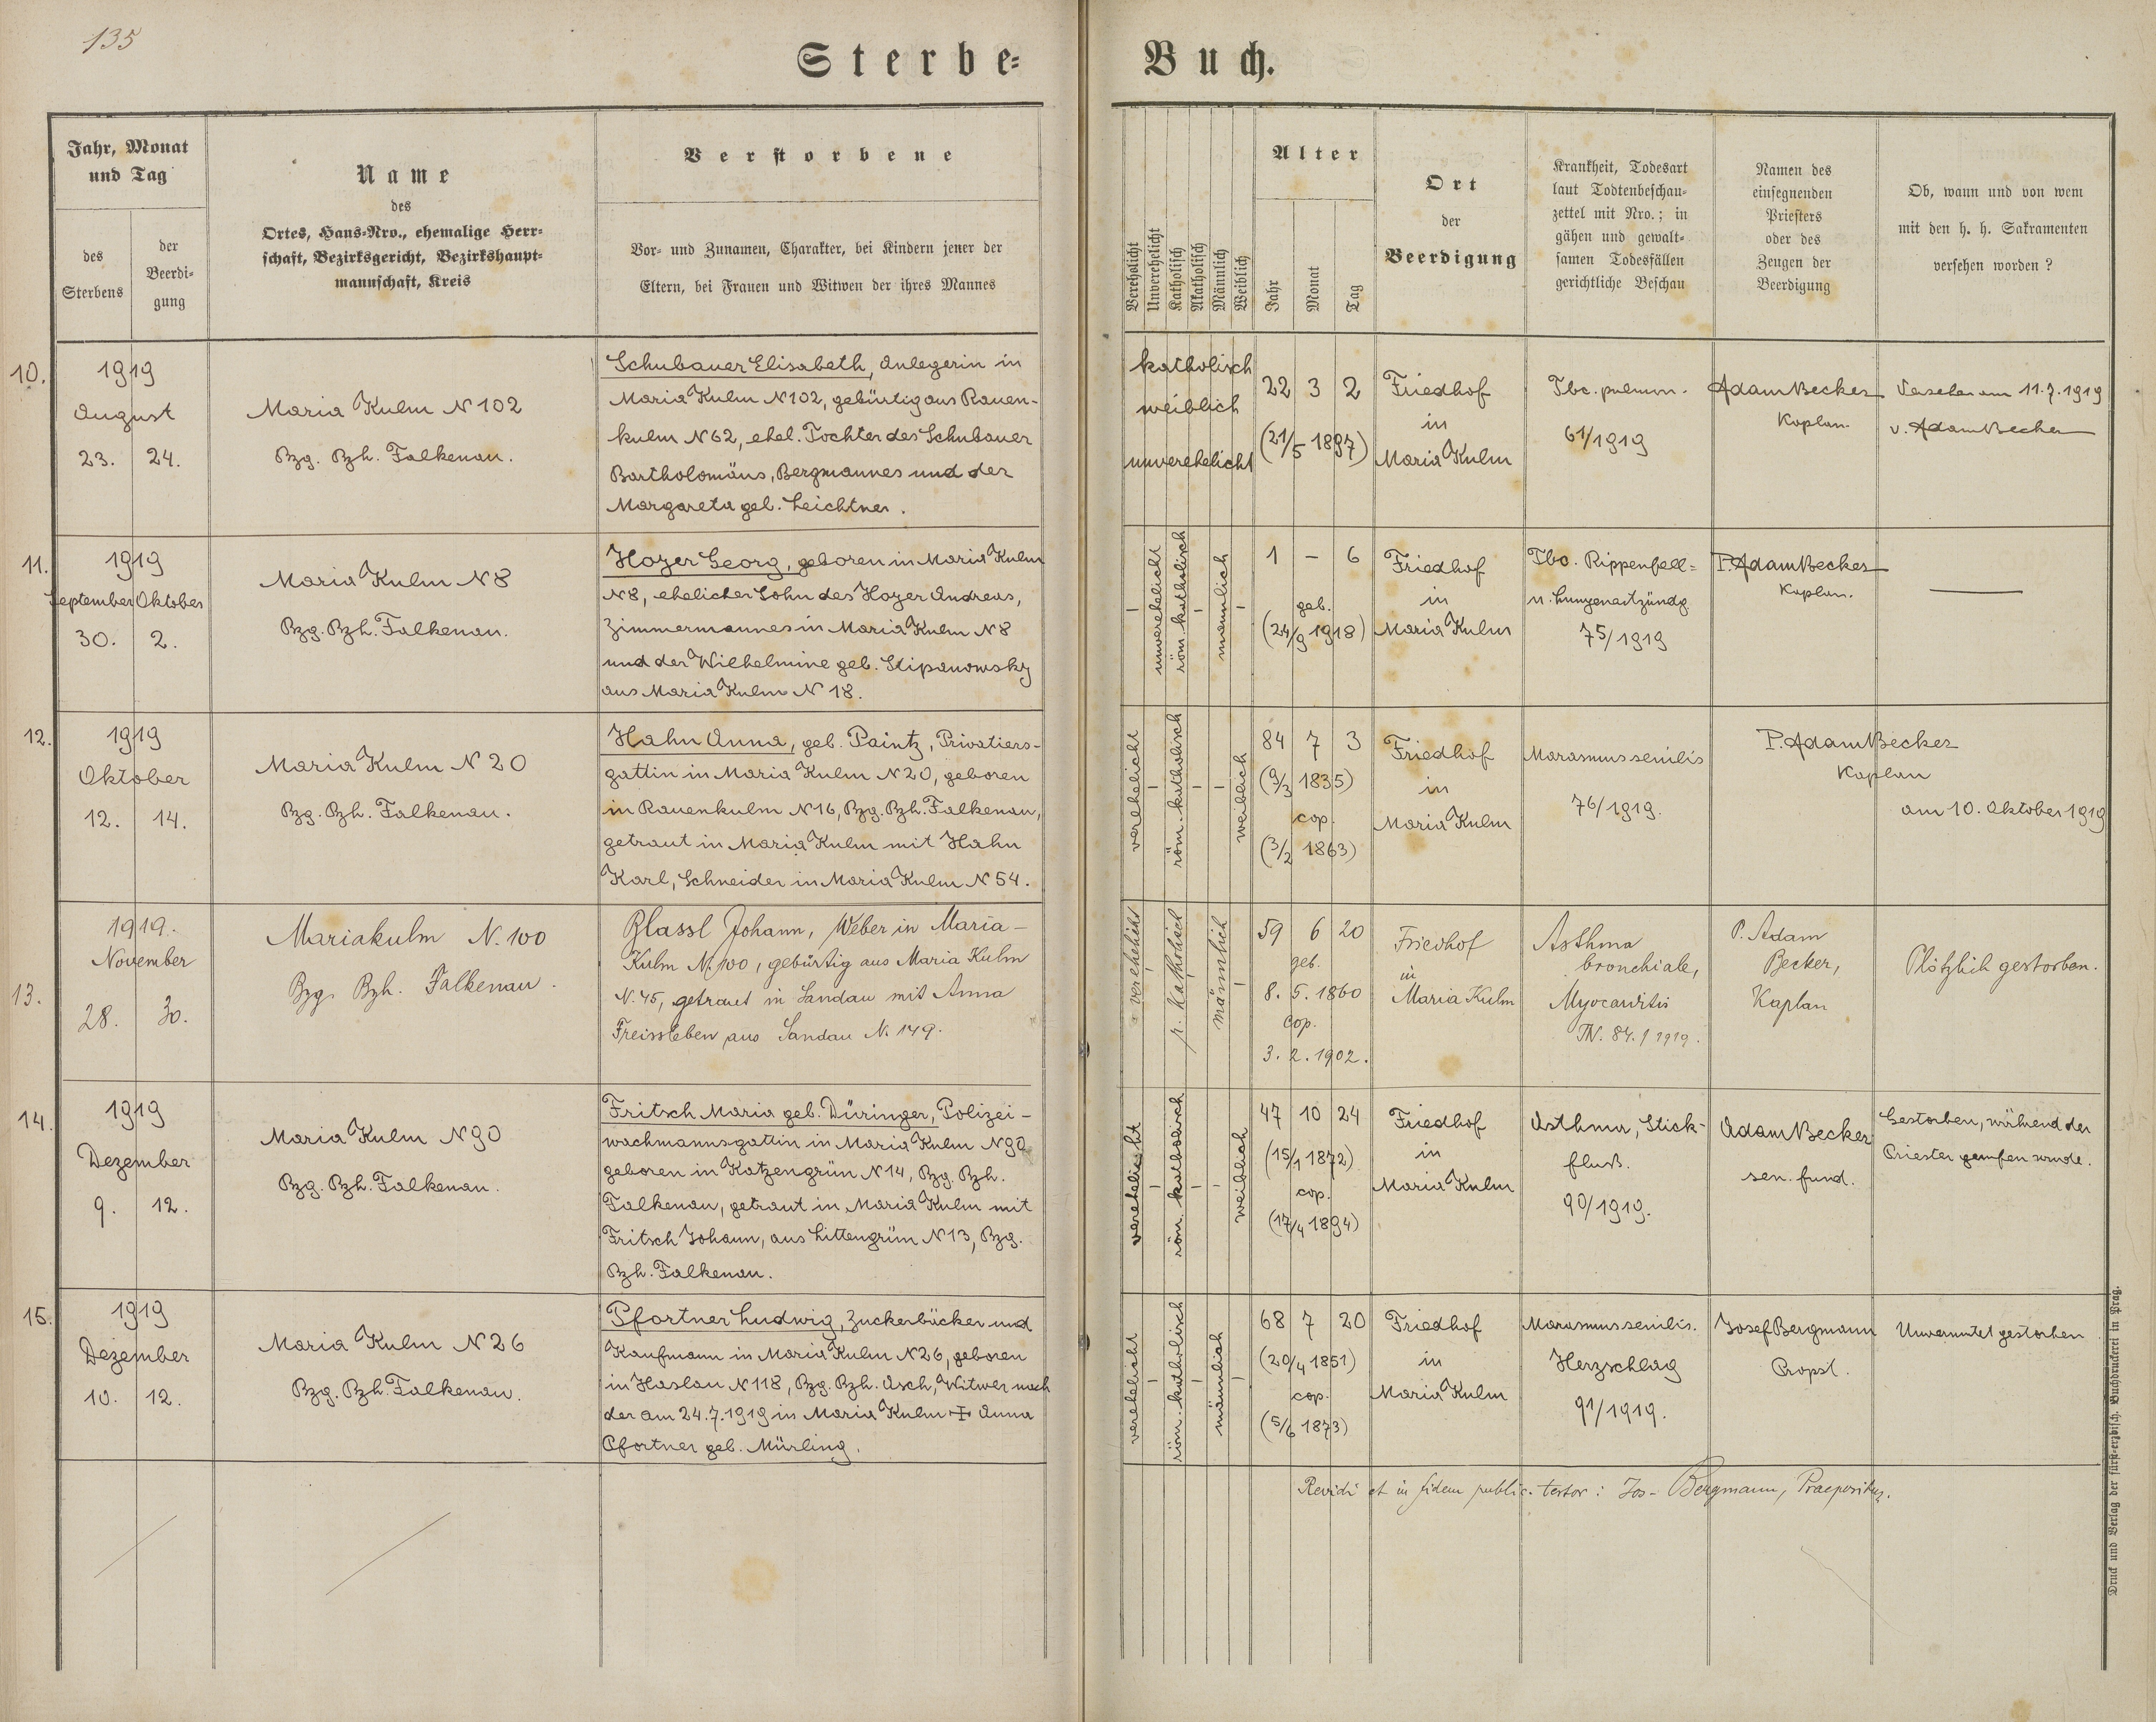 135
Sterbe-Buch.
Jahr, Monat
und Tag
des
Sterbens
der
Beerdi-
gung
Name
des
Ortes, Haus-Nro., ehemalige Herr-
schaft, Bezirksgericht, Bezirkshaupt-
mannschaft, Kreis
Verstorbene
Vor- und Zunamen, Charakter, bei Kindern jener der
Eltern, bei Frauen und Witwen der ihres Mannes
Verehelicht
Unverehelicht
Katholisch
Akatholisch
Männlich
Weiblich
Alter
Jahr
Monat
Tag
Ort
der
Beerdigung
Krankheit, Todesart
laut Todtenbeschau-
zettel mit Nro.; in
gähen und gewalt-
samen Todesfällen
gerichtliche Beschau
Namen des
einsegnenden
Priesters
oder des
Zeugen der
Beerdigung
Ob, wann und von wem
mit den h. h. Sakramenten
versehen worden?
10.
1919
August
23. 24.
Maria Kulm N 102
Bzg. Bzh. Falkenau.
Schubauer Elisabeth, Anlegerin in
Maria Kulm N 102, gebürtig aus Rauen-
kulm N 62, ehel. Tochter des Schubauer
Bartholomäus, Bergmannes und der
Margareta geb. Leichtner.
katholisch
weiblich
unverehelicht
22 3 2
(21/5 1897)
Friedhof
in
Maria Kulm
Tbc. pulmon.
61/1919
Adam Becker
Kaplan.
Versehen am 11.7.1919
v. Adam Becker
11.
1919
September Oktober
30. 2.
Maria Kulm N 8
Bzg. Bzh. Falkenau.
Hoyer Georg, geboren in Maria Kulm
N 8, ehelicher Sohn des Hoyer Andreas,
Zimmermannes in Maria Kulm N 8
und der Wilhelmine geb. Stipanowsky
aus Maria Kulm N 18.
unverehelicht
röm. katholisch
männlich
1 – 6
geb.
(24/9 1918)
Friedhof
in
Maria Kulm
Tbc. Rippenfell-
u. Lungenentzündg.
75/1919
P. Adam Becker
Kaplan.
12.
1919
Oktober
12. 14.
Maria Kulm N 20
Bzg. Bzh. Falkenau.
Hahn Anna, geb. Paintz, Privatiers-
gattin in Maria Kulm N 20, geboren
in Rauenkulm N 16, Bzg. Bzh. Falkenau,
getraut in Maria Kulm mit Hahn
Karl, Schneider in Maria Kulm N 54.
verehelicht
röm. katholisch
weiblich
84 7 3
(9/3 1835)
cop.
(3/2 1863)
Friedhof
in
Maria Kulm
Marasmus senilis
76/1919.
P. Adam Becker
Kaplan
am 10. Oktober 1919
13.
1919.
November
28. 30.
Mariakulm N. 100
Bzg. Bzh. Falkenau.
Blassl Johann, Weber in Maria-
Kulm N. 100, gebürtig aus Maria Kulm
N. 45, getraut in Sandau mit Anna
Freissleben aus Sandau N. 149.
verehelicht
r. katholisch
männlich
59 6 20
geb.
8. 5. 1860
cop.
3. 2. 1902.
Friedhof
in
Maria Kulm
Asthma
bronchiale,
Myocarditis
TN. 84./1919.
P. Adam
Becker,
Kaplan
Plötzlich gestorben.
14.
1919
Dezember
9. 12.
Maria Kulm N 90
Bzg. Bzh. Falkenau.
Fritsch Maria geb. Düringer, Polizei-
wachmannsgattin in Maria Kulm N 90
geboren in Katzengrün N 14, Bzg. Bzh.
Falkenau, getraut in Maria Kulm mit
Fritsch Johann, aus Littengrün N 13, Bzg.
Bzh. Falkenau.
verehelicht
röm. katholisch
weiblich
47 10 24
(15/1 1872)
cop.
(17/4 1894)
Friedhof
in
Maria Kulm
Asthma, Stick-
fluß.
90/1919.
Adam Becker
sen. fund.
Gestorben, während der
Priester gerufen wurde.
15.
1919
Dezember
10. 12.
Maria Kulm N 26
Bzg. Bzh. Falkenau.
Pfortner Ludwig, Zuckerbäcker und
Kaufmann in Maria Kulm N 26, geboren
in Haslau N 118, Bzg. Bzh. Asch, Witwer nach
der am 24.7.1919 in Maria Kulm ✝ Anna
Pfortner geb. Mürling.
verehelicht
röm. katholisch
männlich
68 7 20
(20/4 1851)
cop.
(5/6 1873)
Friedhof
in
Maria Kulm
Marasmus senilis.
Herzschlag
91/1919.
Josef Bergmann
Propst.
Unvermutet gestorben
Revidi et in fidem public. testor: Jos. Bergmann, Praepositus.
Druck und Verlag der fürst-erzbisch. Buchdruckerei in Prag.